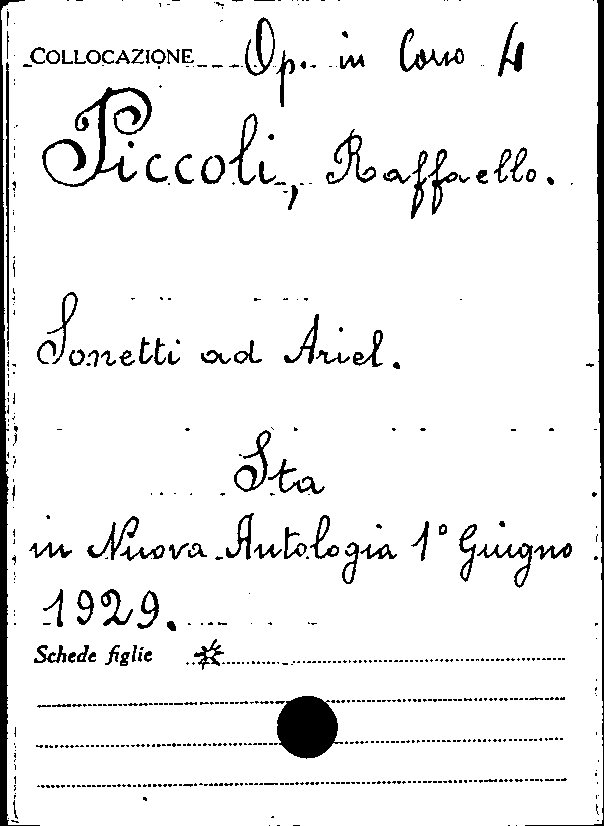 COLLOCAZIONE Op. in Corso 4
Piccoli, Raffaello.
Sonetti ad Ariel.
Sta
in Nuova Antologia 1° Giugno
1929.
Schede figlie